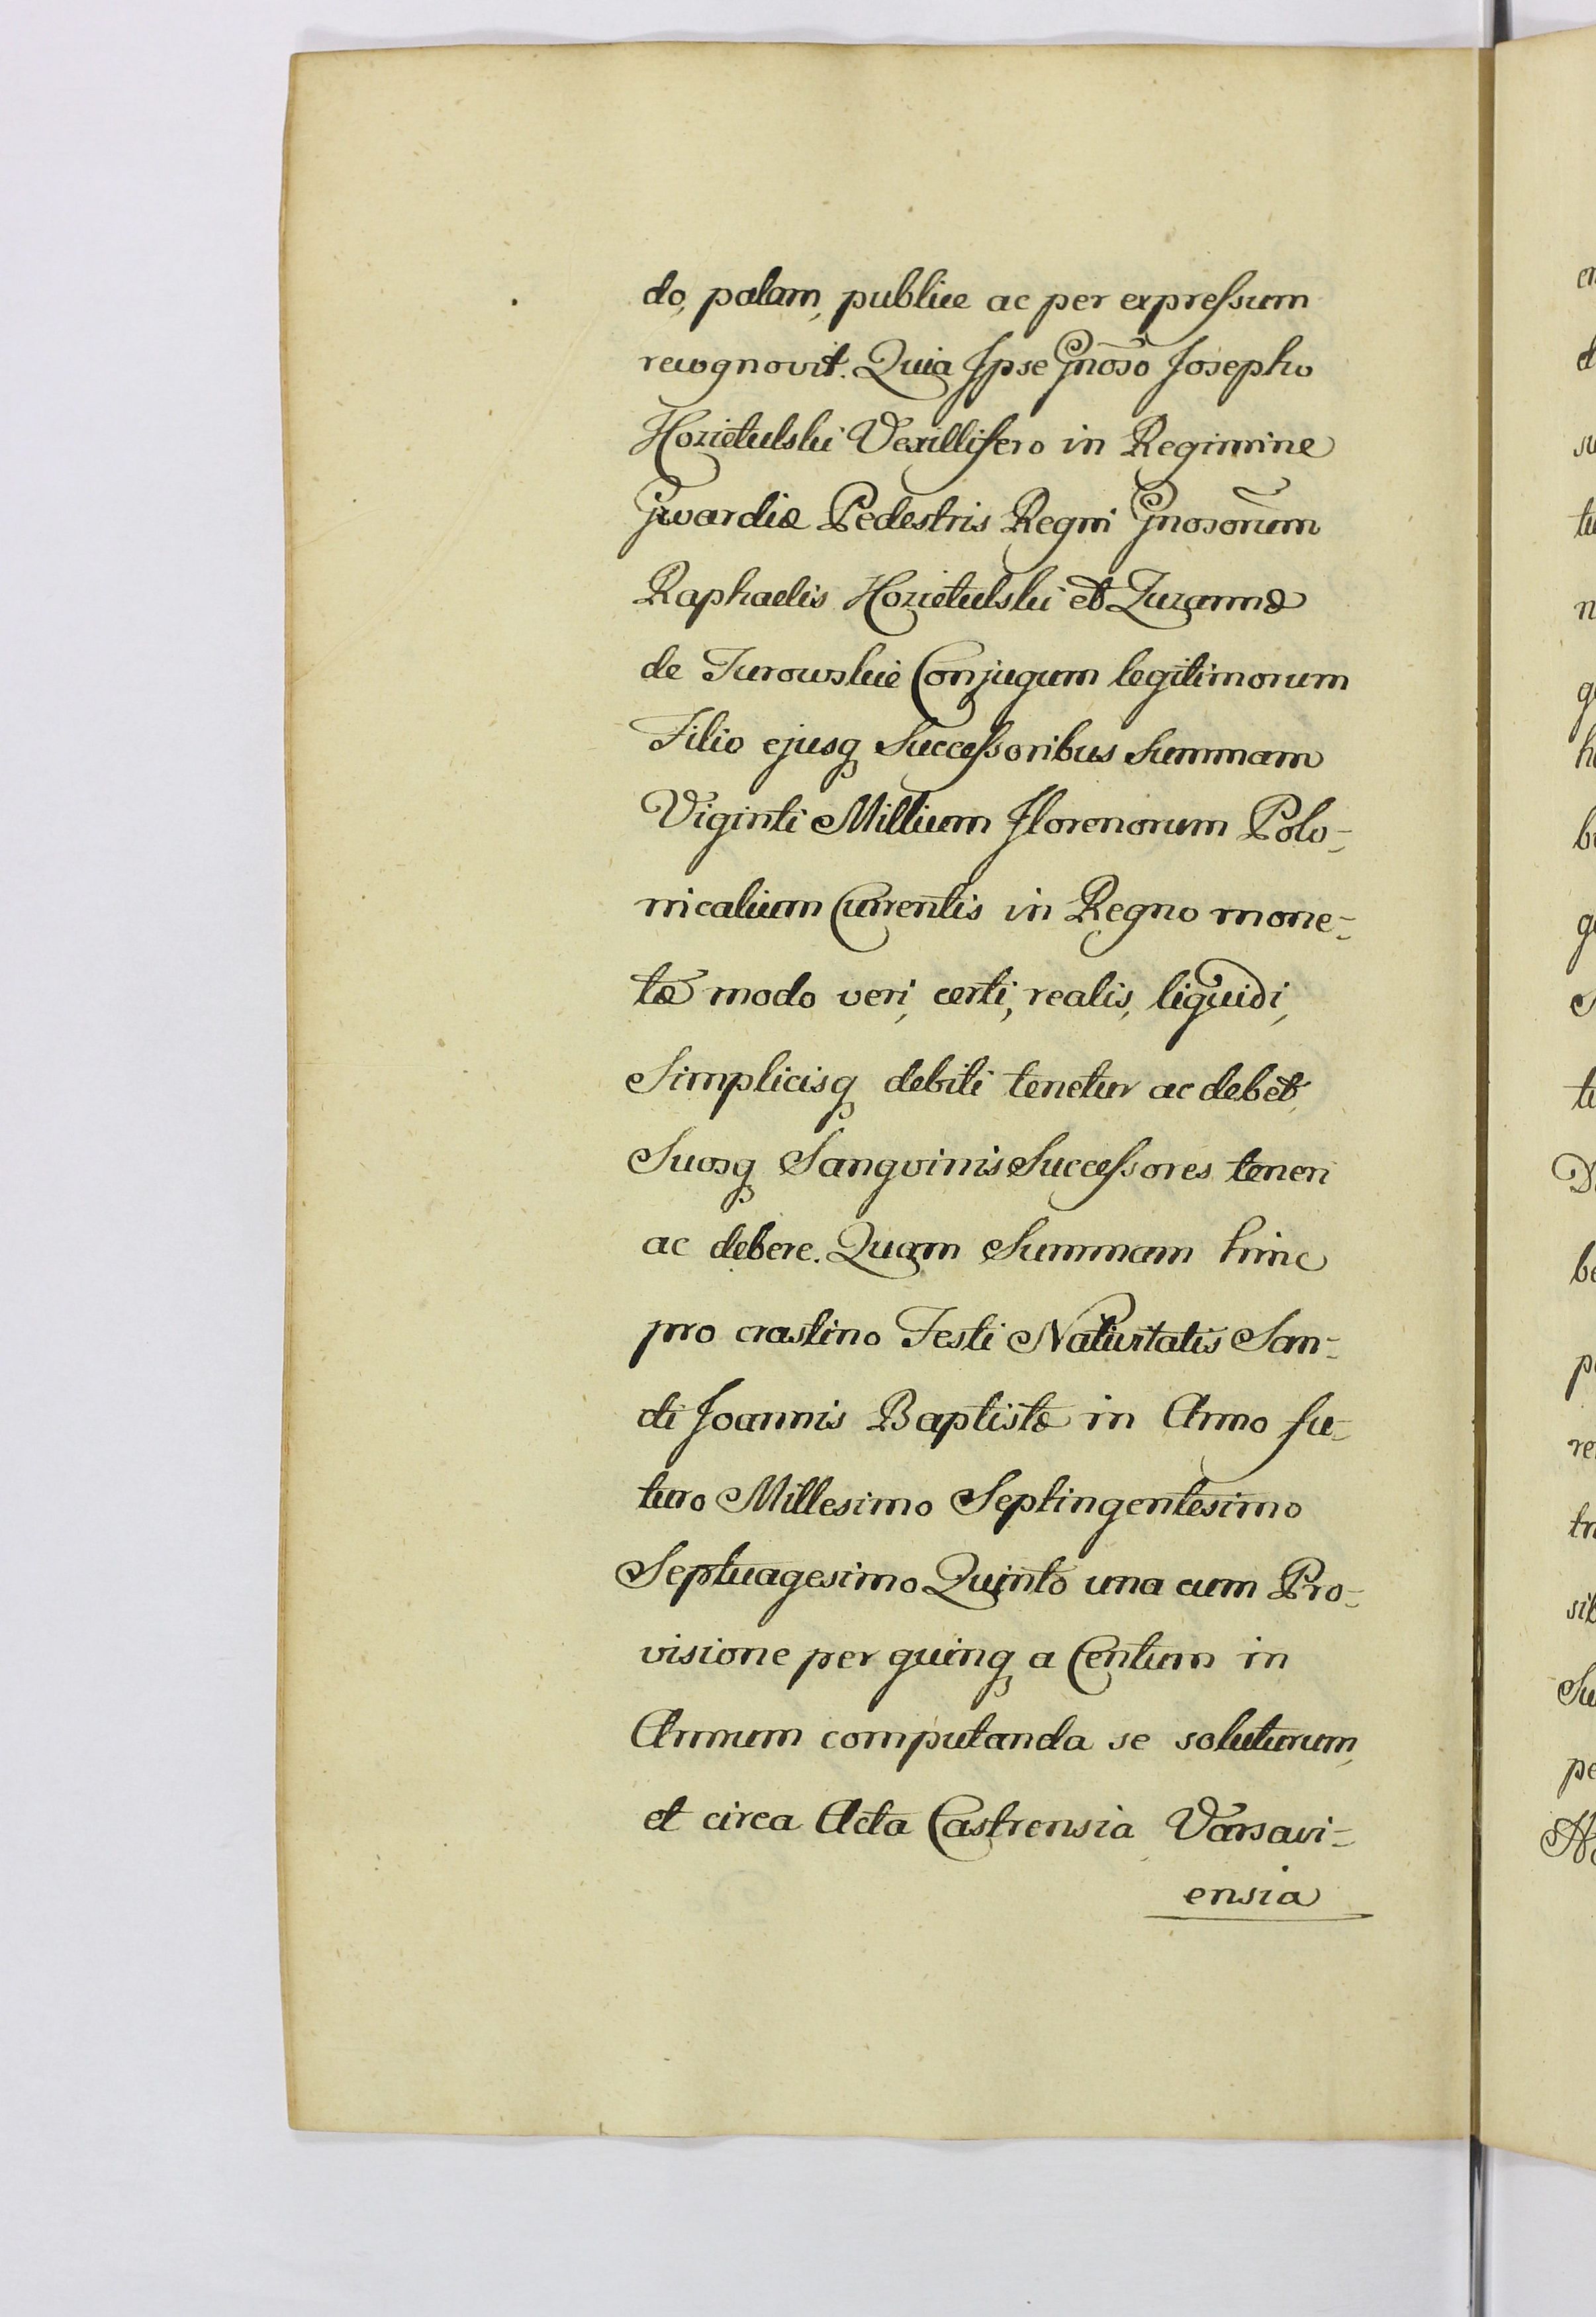 do, palam, publice ac per expreſsum
recognovit. Quia Ipse Gnōso Josepho
Kozietulski Vexillifero in Regimine
Gwardiæ Pedestris Regni Gnosorum
Raphaelis Kozietulski et Zuzannæ
de Turowskie Conjugum legitimorum
Filio ejusq Succeſsoribus Summam
Viginti Millium Florenorum Polo=
nicalium Currentis in Regno mone=
tæ modo veri, certi, realis, liquidi,
Simplicisq debiti tenetur ac debet,
Suosq Sangvinis Succeſsores teneri
ac debere. Quam Summam hinc
pro crastino Festi Nativitatis San=
cti Joannis Baptistæ in Anno fu=
turo Millesimo Septingentesimo
Septuagesimo Quinto una cum Pro=
visione per quinq a Centum in
Annum computanda se soluturum,
et circa Acta Castrensia Varsavi=
ensia